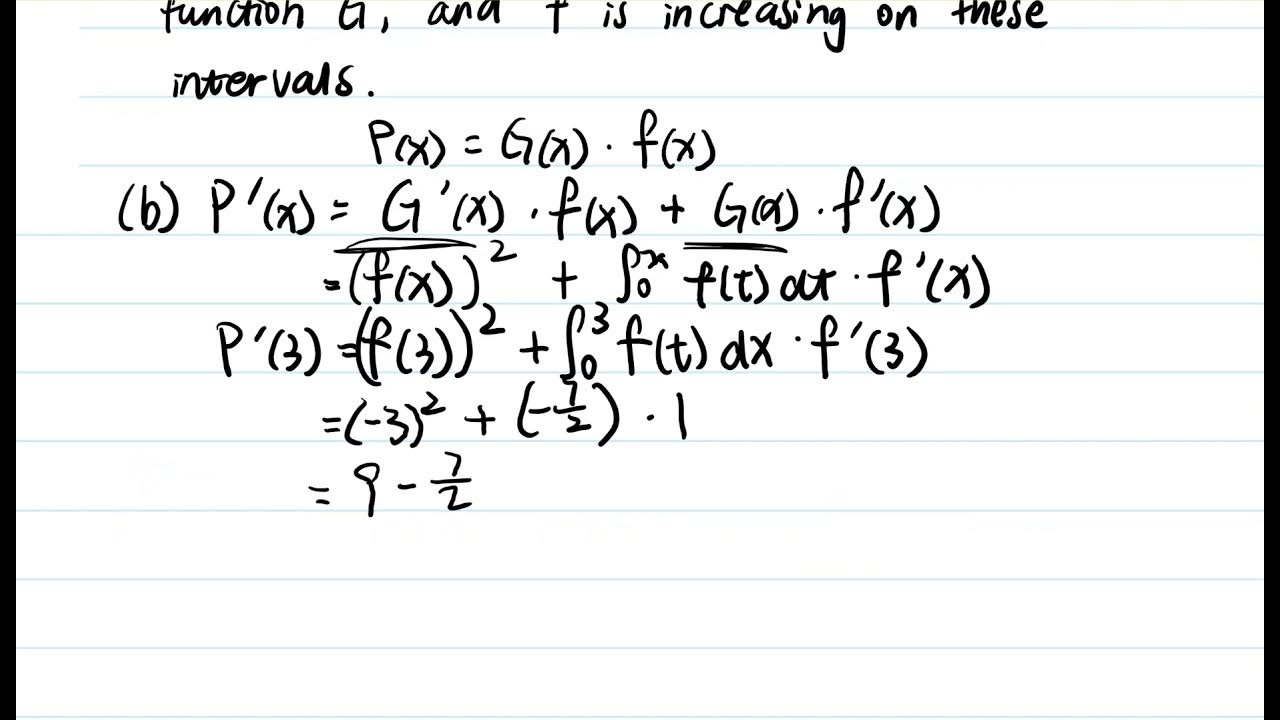 function G, and f is increasing on these
intervals.
P(x) = G(x) · f(x)
(b) P'(x) = G'(x) · f(x) + G(x) · f'(x)
= (f(x))² + ∫₀ˣ f(t) dt · f'(x)
P'(3) = (f(3))² + ∫₀³ f(t) dx · f'(3)
= (-3)² + (-7/2) · 1
= 9 - 7/2